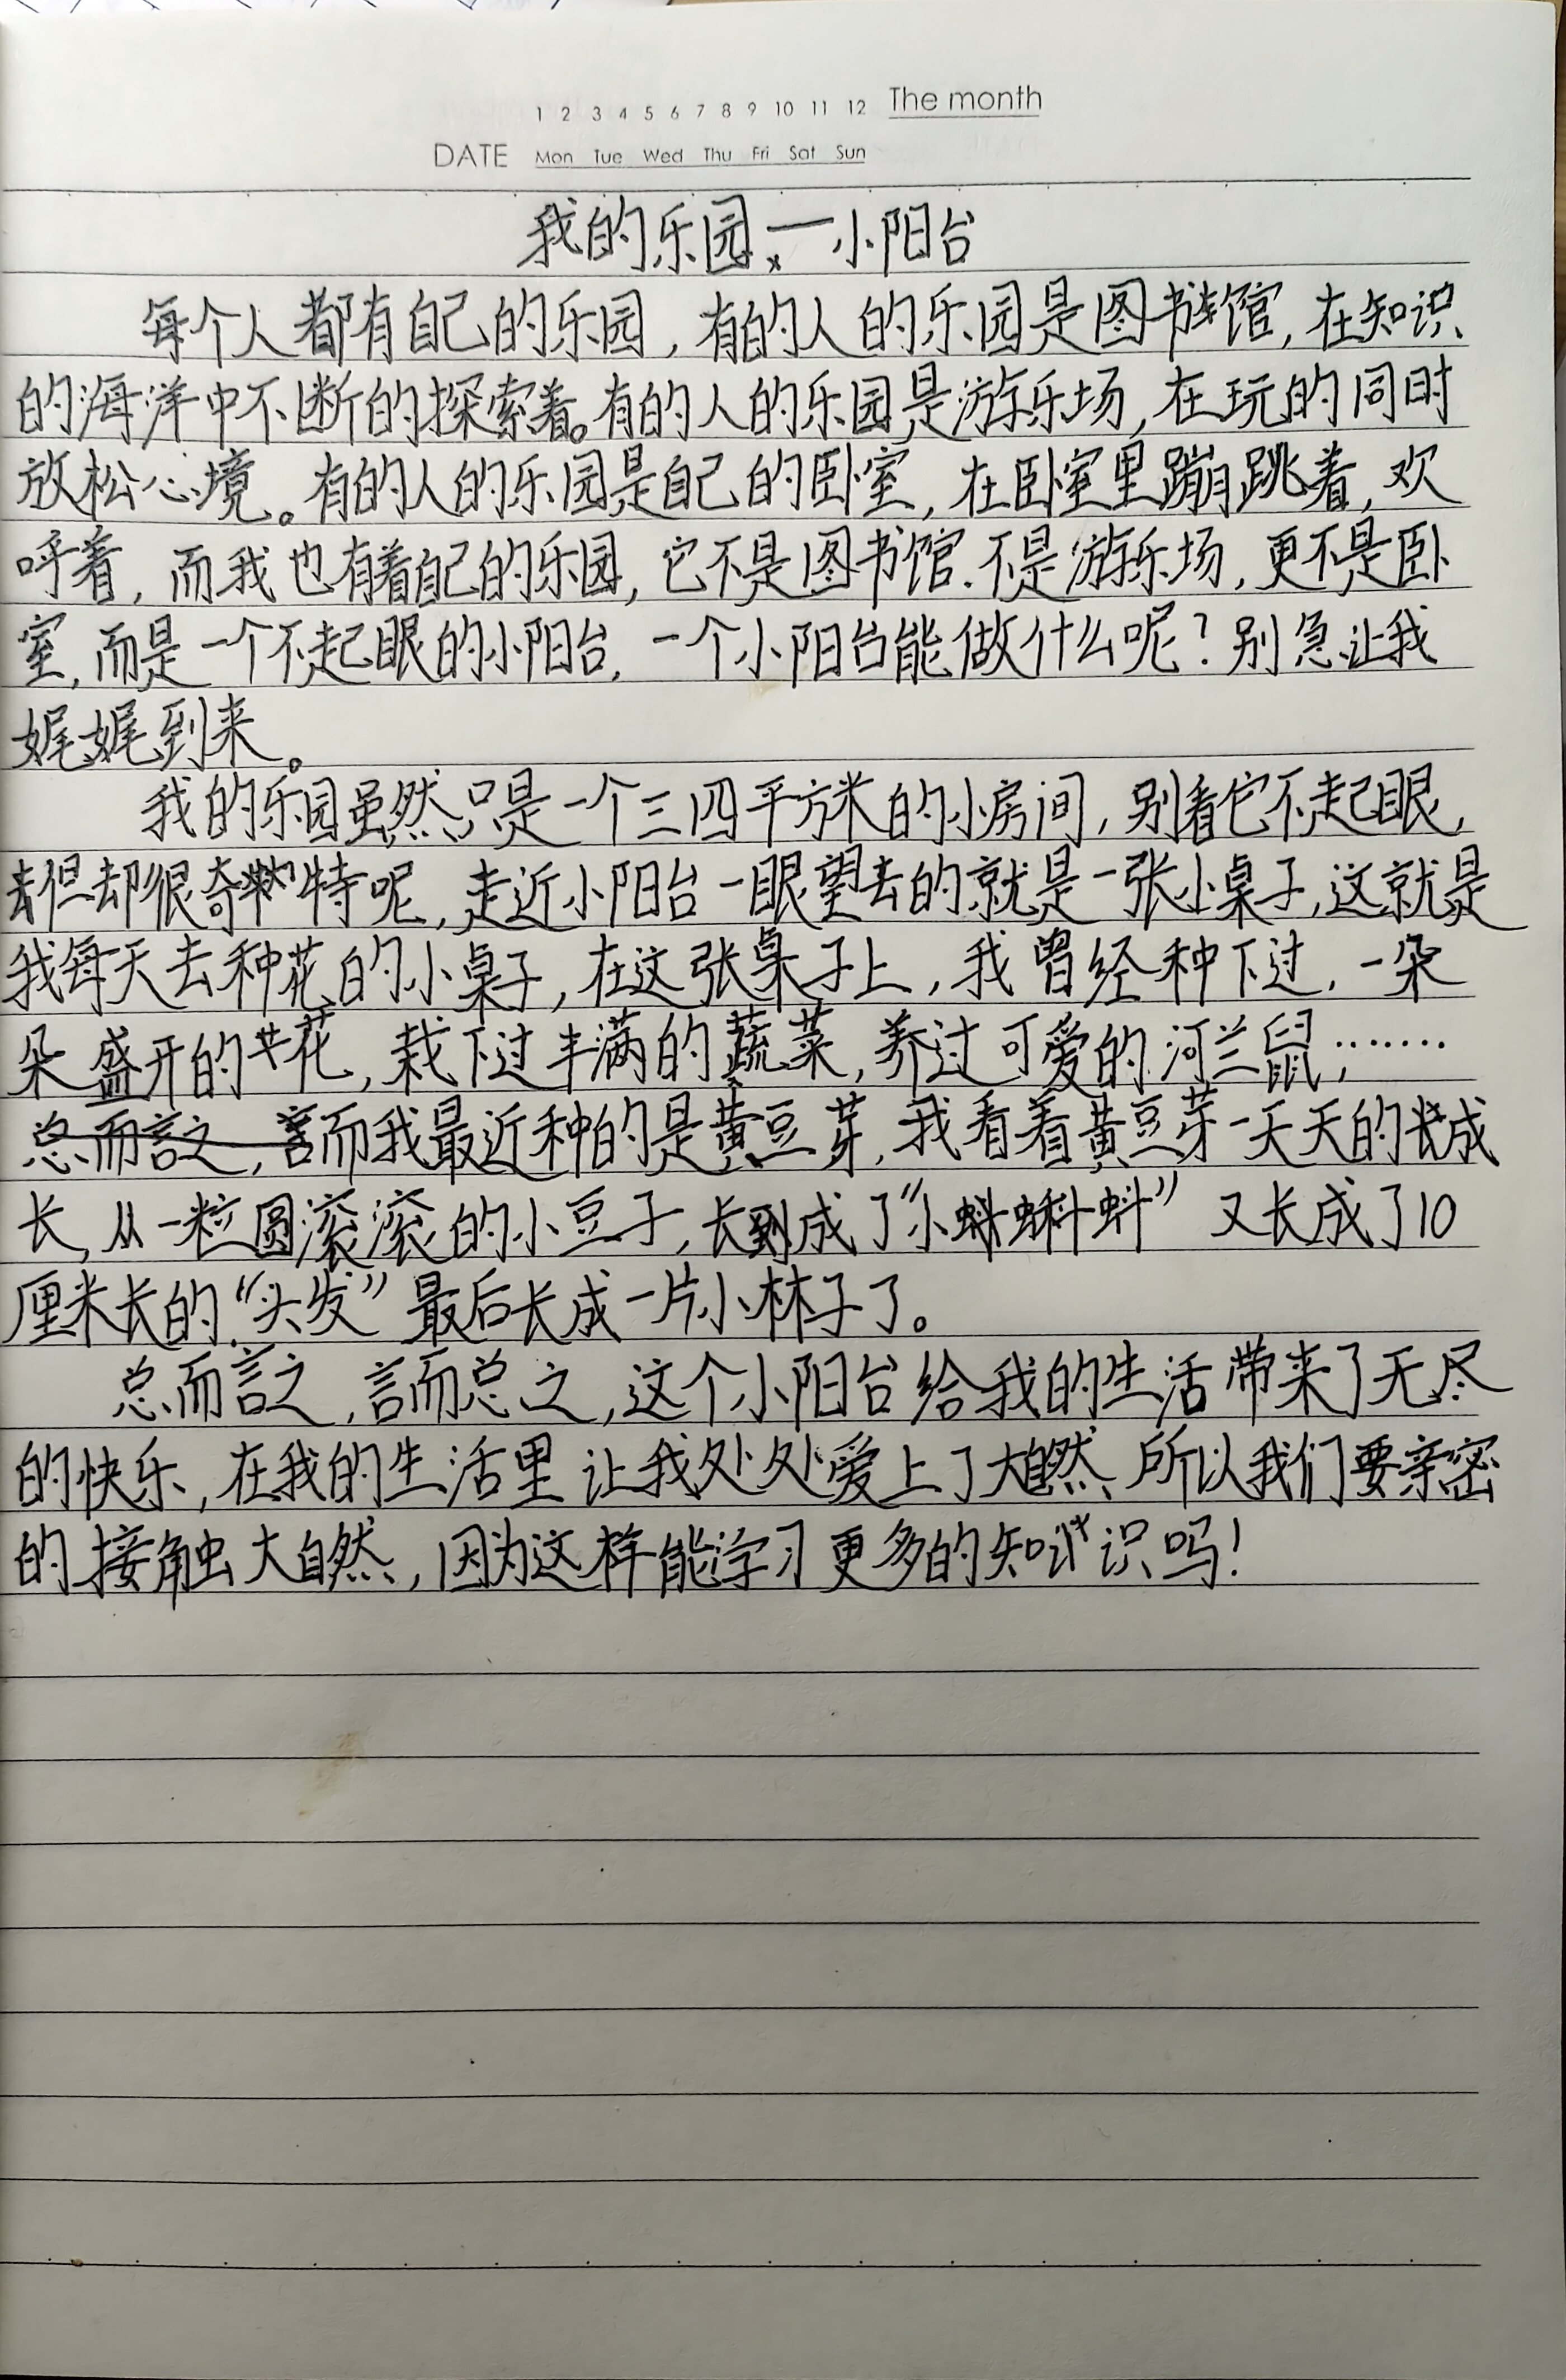 1 2 3 4 5 6 7 8 9 10 11 12 The month
DATE Mon Tue Wed Thu Fri Sat Sun
我的乐园——小阳台
每个人都有自己的乐园,有的人的乐园是图书馆,在知识
的海洋中不断的探索着。有的人的乐园是游乐场,在玩的同时
放松心境。有的人的乐园是自己的卧室,在卧室里蹦跳着,欢
呼着,而我也有着自己的乐园,它不是图书馆.不是游乐场,更不是卧
室,而是一个不起眼的小阳台,一个小阳台能做什么呢?别急让我
娓娓到来。
我的乐园虽然只是一个三四平方米的小房间,别看它不起眼,
但却很奇特呢,走近小阳台一眼望去的就是一张小桌子,这就是
我每天去种花的小桌子,在这张桌子上,我曾经种下过,一朵
朵盛开的花,栽下过丰满的蔬菜,养过可爱的河兰鼠,……
总而言之,言而我最近种的是黄豆芽,我看着黄豆芽一天天的成
长,从一粒圆滚滚的小豆子,长成了“小蝌蚪”又长成了10
厘米长的“头发”最后长成一片小林子了。
总而言之,言而总之,这个小阳台给我的生活带来了无尽
的快乐,在我的生活里让我处处爱上了大自然,所以我们要亲密
的接触大自然,因为这样能学习更多的知识吗!